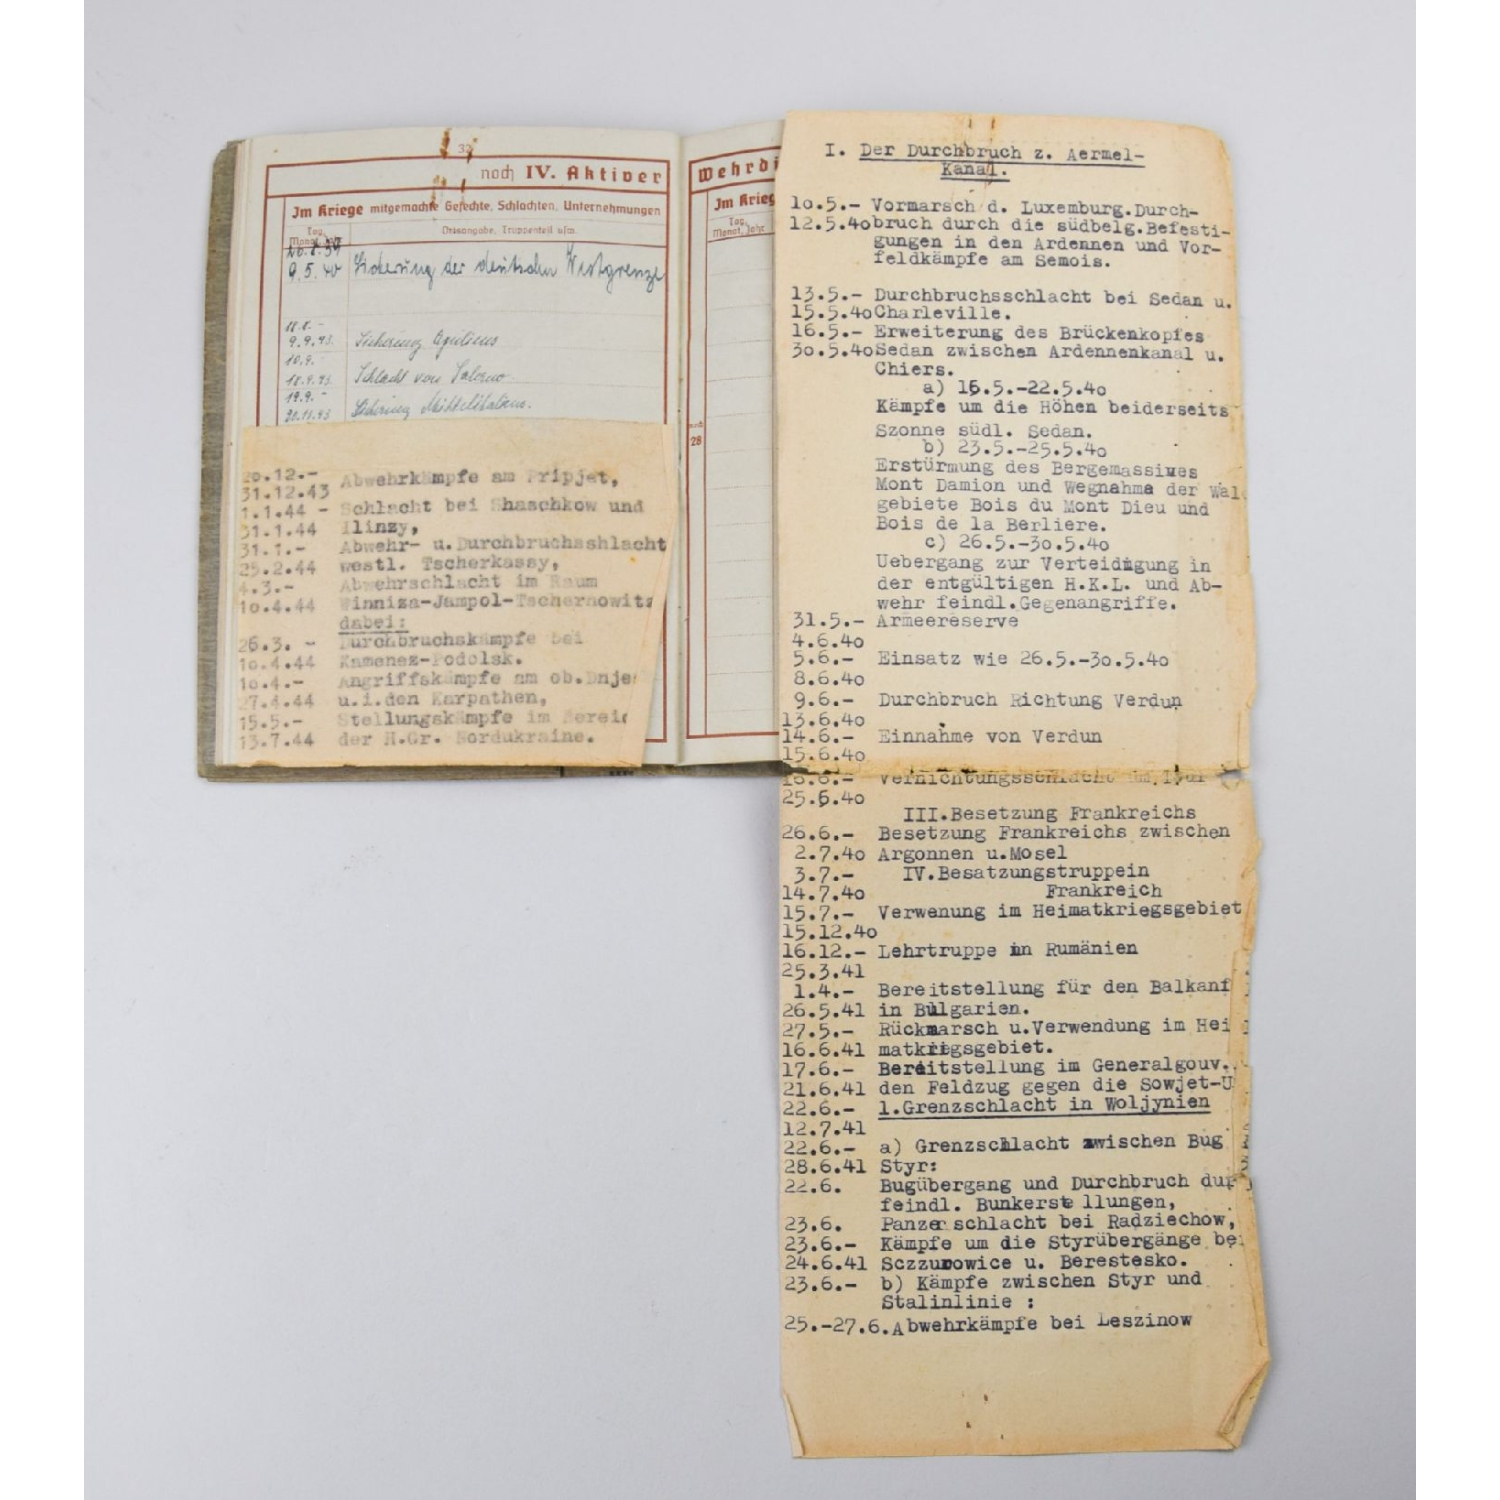 32
noch IV. Aktiver
Im Kriege mitgemachte Gefechte, Schlachten, Unternehmungen
Tag, Monat, Jahr
Ortsangabe, Truppenteil usw.
26.8.39
9.5.40 Sicherung der deutschen Westgrenze
9.9.43 Sicherung Apuliens
10.9.-
18.9.43 Schlacht von Salerno
19.9.-
20.11.43 Sicherung Mittelitaliens.
20.12.- Abwehrkämpfe am Pripjet,
31.12.43
1.1.44 - Schlacht bei Shaschkow und
31.1.44 Ilinzy,
31.1.- Abwehr- u.Durchbruchsshlacht
25.2.44 westl. Tscherkassy,
4.3.- Abwehrschlacht im Raum
10.4.44 Winniza-Jampol-Tschernowitz
dabei:
26.3. - Durchbruchskämpfe bei
10.4.44 Kamenez-Podolsk.
10.4.- Angriffskämpfe am ob.Dnje
27.4.44 u.i.den Karpathen,
15.5.- Stellungskämpfe im Bereic
13.7.44 der H.Gr. Nordukraine.
Wehrdi
Im Krieg
Tag, Monat, Jahr
noch
28
I. Der Durchbruch z. Aermel-
Kanal.
1o.5.- Vormarsch d. Luxemburg.Durch-
12.5.4obruch durch die südbelg.Befesti-
gungen in den Ardennen und Vor-
feldkämpfe am Semois.
13.5.- Durchbruchsschlacht bei Sedan u.
15.5.4oCharleville.
16.5.- Erweiterung des Brückenkopfes
3o.5.4oSedan zwischen Ardennenkanal u.
Chiers.
a) 16.5.-22.5.4o
Kämpfe um die Höhen beiderseits
Szonne südl. Sedan.
b) 23.5.-25.5.4o
Erstürmung des Bergemassives
Mont Damion und Wegnahma der Wal
gebiete Bois du Mont Dieu und
Bois de la Berliere.
c) 26.5.-3o.5.4o
Uebergang zur Verteidigung in
der entgültigen H.K.L. und Ab-
wehr feindl.Gegenangriffe.
31.5.- Armeereserve
4.6.4o
5.6.- Einsatz wie 26.5.-3o.5.4o
8.6.4o
9.6.- Durchbruch Richtung Verdun
13.6.4o
14.6.- Einnahme von Verdun
15.6.4o
16.6.- Vernichtungsschlacht
25.6.4o
III.Besetzung Frankreichs
26.6.- Besetzung Frankreichs zwischen
2.7.4o Argonnen u.Mosel
3.7.- IV.Besatzungstruppein
14.7.4o Frankreich
15.7.- Verwenung im Heimatkriegsgebiet
15.12.4o
16.12.- Lehrtruppe in Rumänien
25.3.41
1.4.- Bereitstellung für den Balkanf
26.5.41 in Bulgarien.
27.5.- Rückmarsch u.Verwendung im Hei
16.6.41 matkriegsgebiet.
17.6.- Bereitstellung im Generalgouv.
21.6.41 den Feldzug gegen die Sowjet-U
22.6.- 1.Grenzschlacht in Woljynien
12.7.41
22.6.- a) Grenzschlacht zwischen Bug
28.6.41 Styr:
22.6. Bugübergang und Durchbruch dur
feindl. Bunkerstellungen,
23.6. Panzerschlacht bei Radziechow,
23.6.- Kämpfe um die Styrübergänge bei
24.6.41 Sczzurowice u. Berestesko.
23.6.- b) Kämpfe zwischen Styr und
Stalinlinie :
25.-27.6.Abwehrkämpfe bei Leszinow